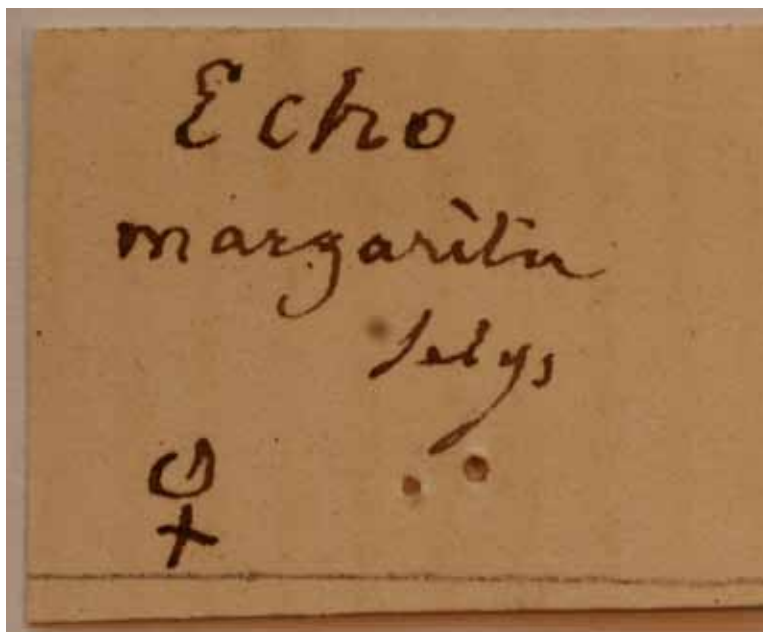 Echo
margarita
Selys
♀